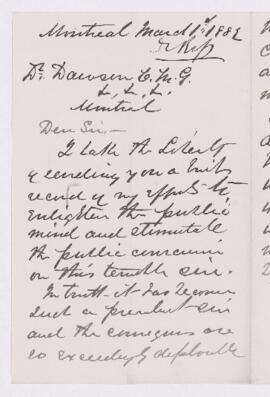 Montreal March 1st 1882
Dr. Dawson C. M. G.
L. L. D.
Montreal
Dear Sir,—
I take the Liberty
of sending you a brief
record of my efforts to
enlighten the public
mind and stimulate
the public conscience
on this terrible sin.
In truth it has become
such a prevalent sin
and the consequences are
so exceedingly deplorable